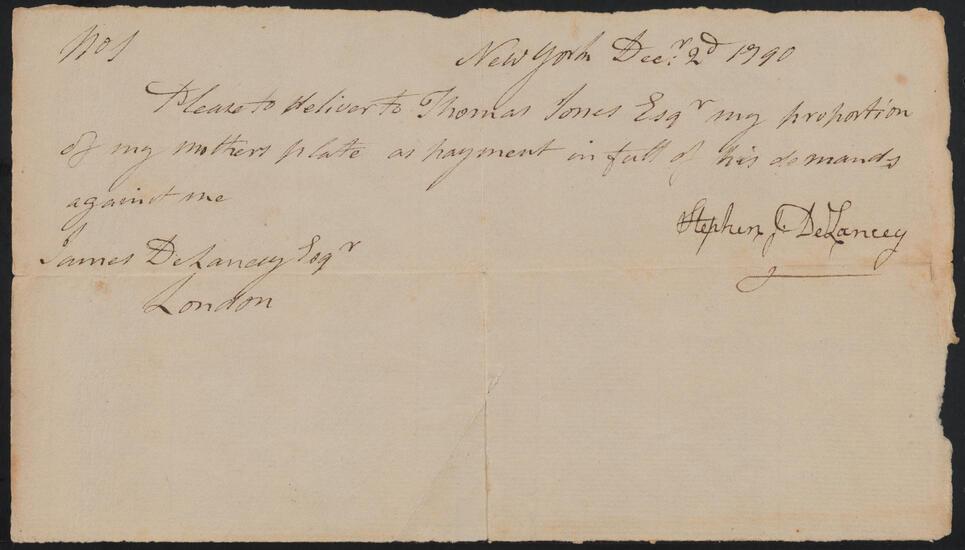 No 1
New York Decr. 2d 1790
Please to deliver to Thomas Jones Esqr my proportion
of my mothers plate as payment in full of his demands
against me
Stephen J. DeLancey
James DeLancey Esqr
London